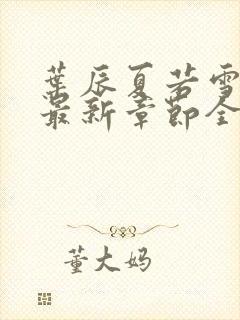 葉辰夏若雪
最新章節全
董大妈